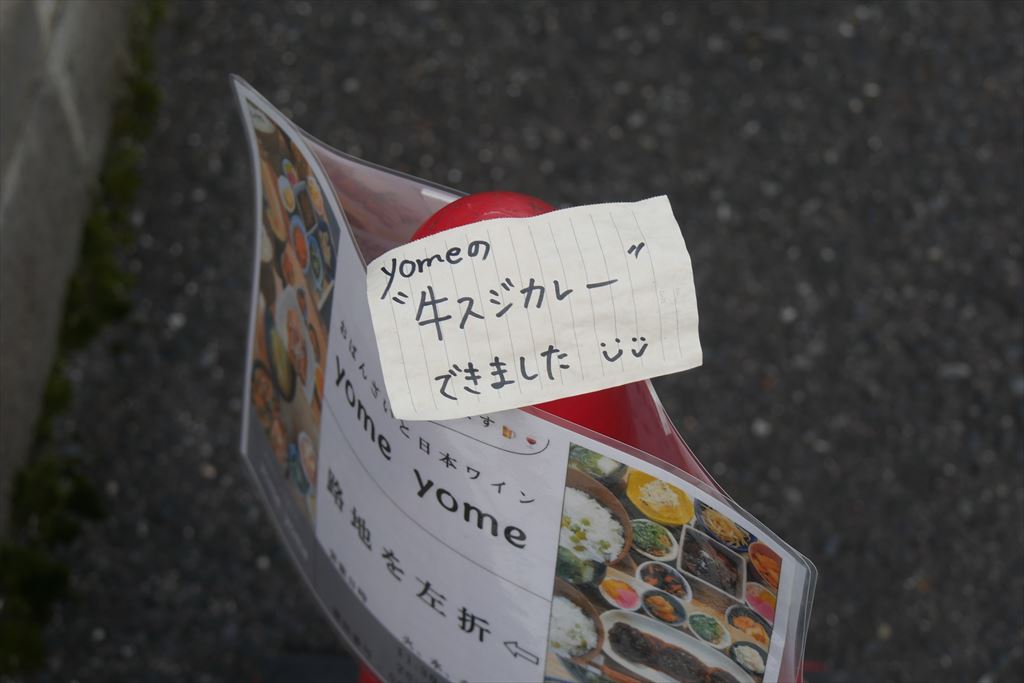 yomeの
"牛スジカレー"
できました
おばんざいと日本ワイン
yome yome
路地を左折